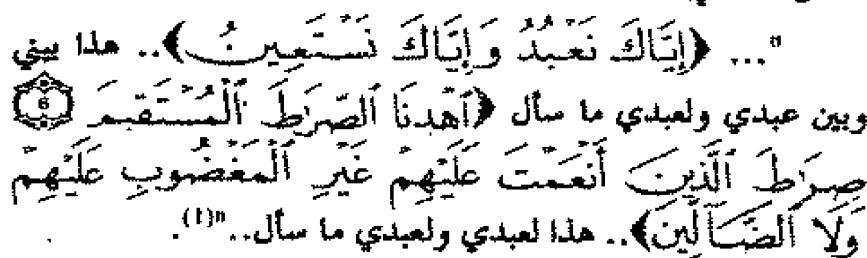 "... ﴿إِيَّاكَ نَعْبُدُ وَإِيَّاكَ نَسْتَعِينُ﴾.. هذا بيني
وبين عبدي ولعبدي ما سأل ﴿ٱهْدِنَا ٱلصِّرَٰطَ ٱلْمُسْتَقِيمَ ۝6
صِرَٰطَ ٱلَّذِينَ أَنْعَمْتَ عَلَيْهِمْ غَيْرِ ٱلْمَغْضُوبِ عَلَيْهِمْ
وَلَا ٱلضَّآلِّينَ﴾.. هذا لعبدي ولعبدي ما سأل.."(1).